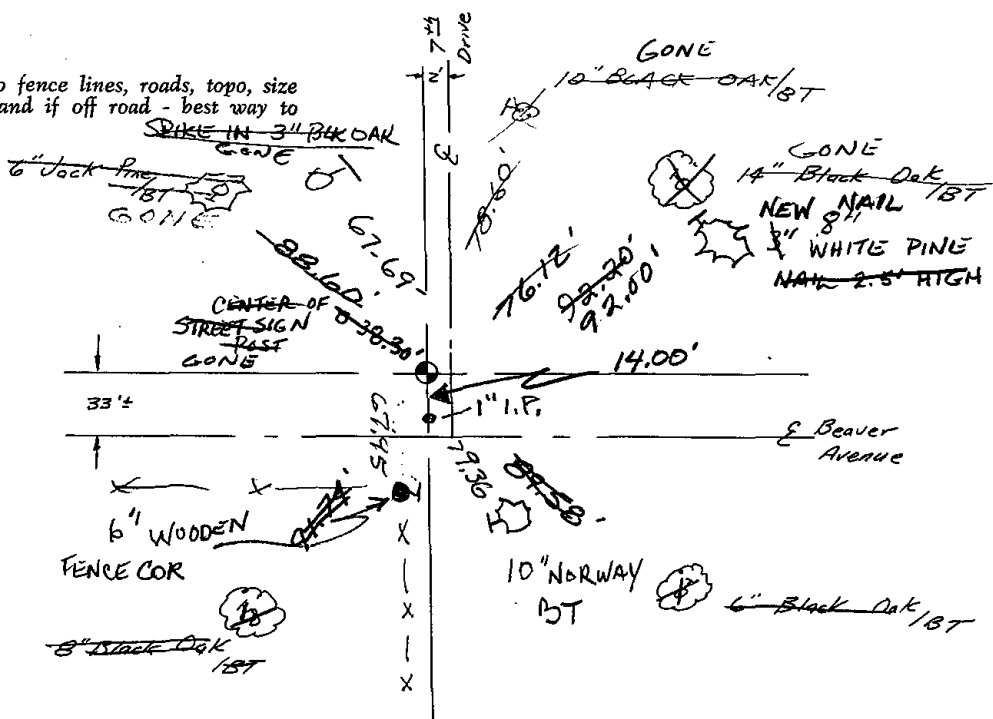 7th
Drive
2'
o fence lines, roads, topo, size
and if off road - best way to
GONE
10" BLACK OAK/BT
SPIKE IN 3" BLK OAK
GONE
6" Jack Pine
/BT
GONE
GONE
14" Black Oak
/BT
NEW NAIL
8"
3" WHITE PINE
NAIL 2.5' HIGH
67.69'
78.60'
88.60'
76.12'
92.20'
92.00'
CENTER OF
STREET SIGN
POST
GONE
38.30'
14.00'
33'±
1" I.P.
℄ Beaver
Avenue
67.45
79.36
89.58
X X
6" WOODEN
FENCE COR
X
10" NORWAY
BT
6" Black Oak
/BT
8" Black Oak
/BT
X
X